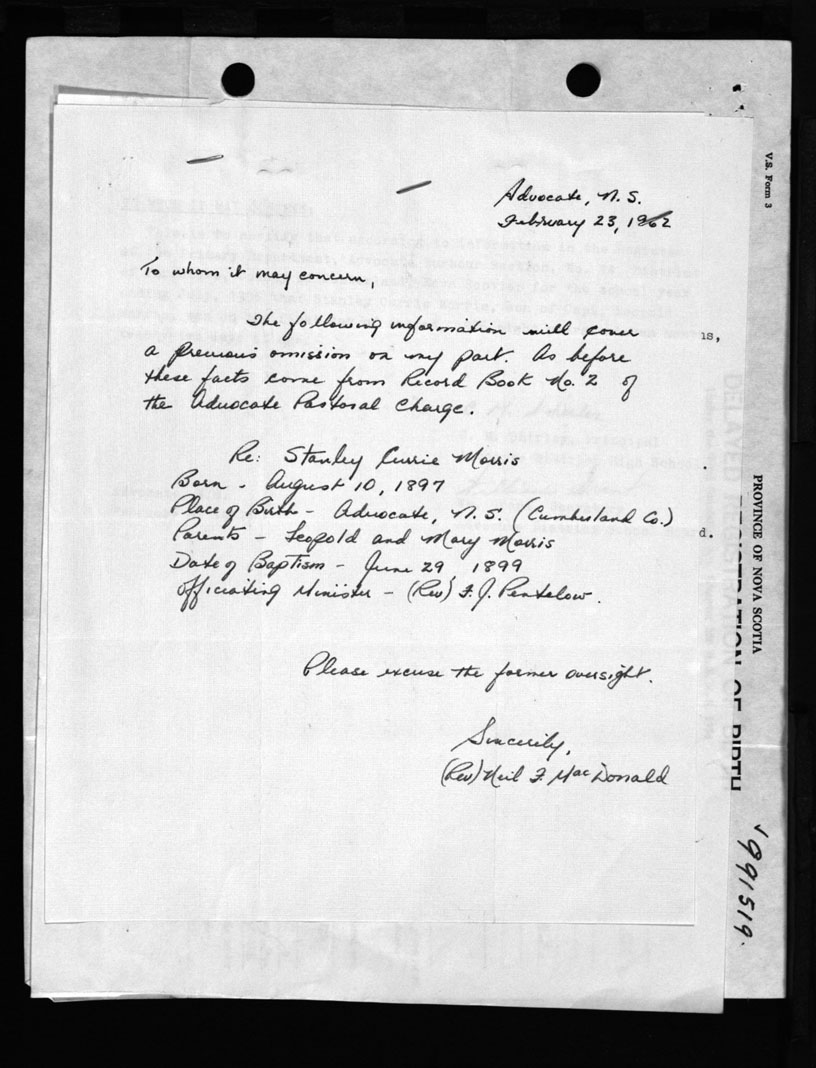 Advocate, N. S.
February 23, 1962
To whom it may concern,
The following information will cover
a previous omission on my part. As before
these facts come from Record Book No. 2 of
the Advocate Pastoral Charge.
Re: Stanley Currie Morris
Born - August 10, 1897
Place of Birth - Advocate, N. S. (Cumberland Co.)
Parents - Leopold and Mary Morris
Date of Baptism - June 29 1899
Officiating Minister - (Rev) F. J. Pentelow.
Please excuse the former oversight.
Sincerely,
(Rev) Neil F. MacDonald
is,
d.
V.S. Form 3
PROVINCE OF NOVA SCOTIA
REGISTRATION OF BIRTH
991519.